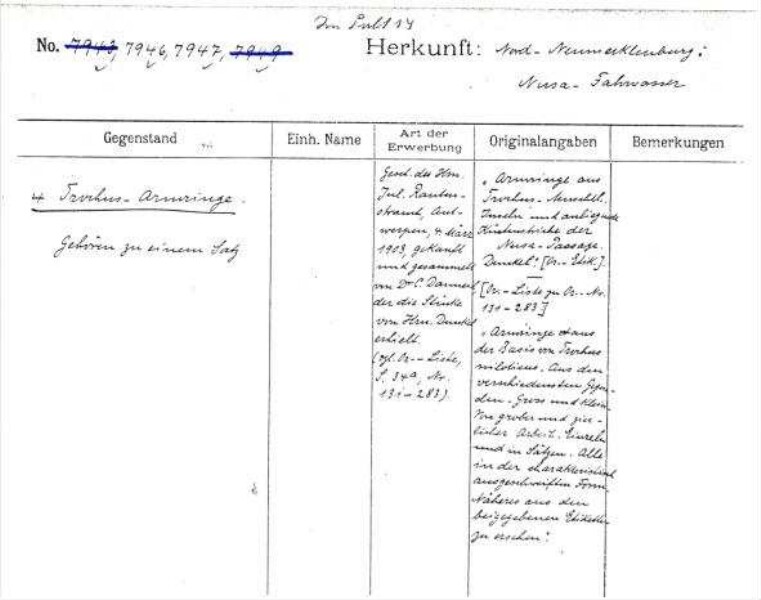 Im Pult 14
No. 7943, 7946, 7947, 7949
Herkunft: Nord-Neumecklenburg:
Nusa-Fahrwasser
Gegenstand
Einh. Name
Art der Erwerbung
Originalangaben
Bemerkungen
4 Trochus-Armringe.
Gehören zu einem Satz
Gesch. des Hrn.
Jul. Rauten-
strauch, Ant-
werpen, 4. März
1903, gekauft
und gesammelt
von Dr. C. Danneil,
der die Stücke
von Hrn. Dunkel
erhielt.
(vgl. Or.-Liste,
S. 34a, Nr.
131-283).
„Armringe aus
Trochus-Muschel.
Inseln und anliegende
Küstenstriche der
Nusa-Passage.
Dunkel". [Or.-Etik.].
[Or.-Liste zu Or.-Nr.
131-283]
„Armringe aus
der Basis von Trochus
niloticus. Aus den
verschiedensten Gegen-
den. Gross und klein.
Von grober und zier-
licher Arbeit. Einzeln
und in Sätzen. Alle
in der charakteristisch
ausgeschweiften Form.
Näheres aus den
beigegebenen Etiketten
zu ersehen".